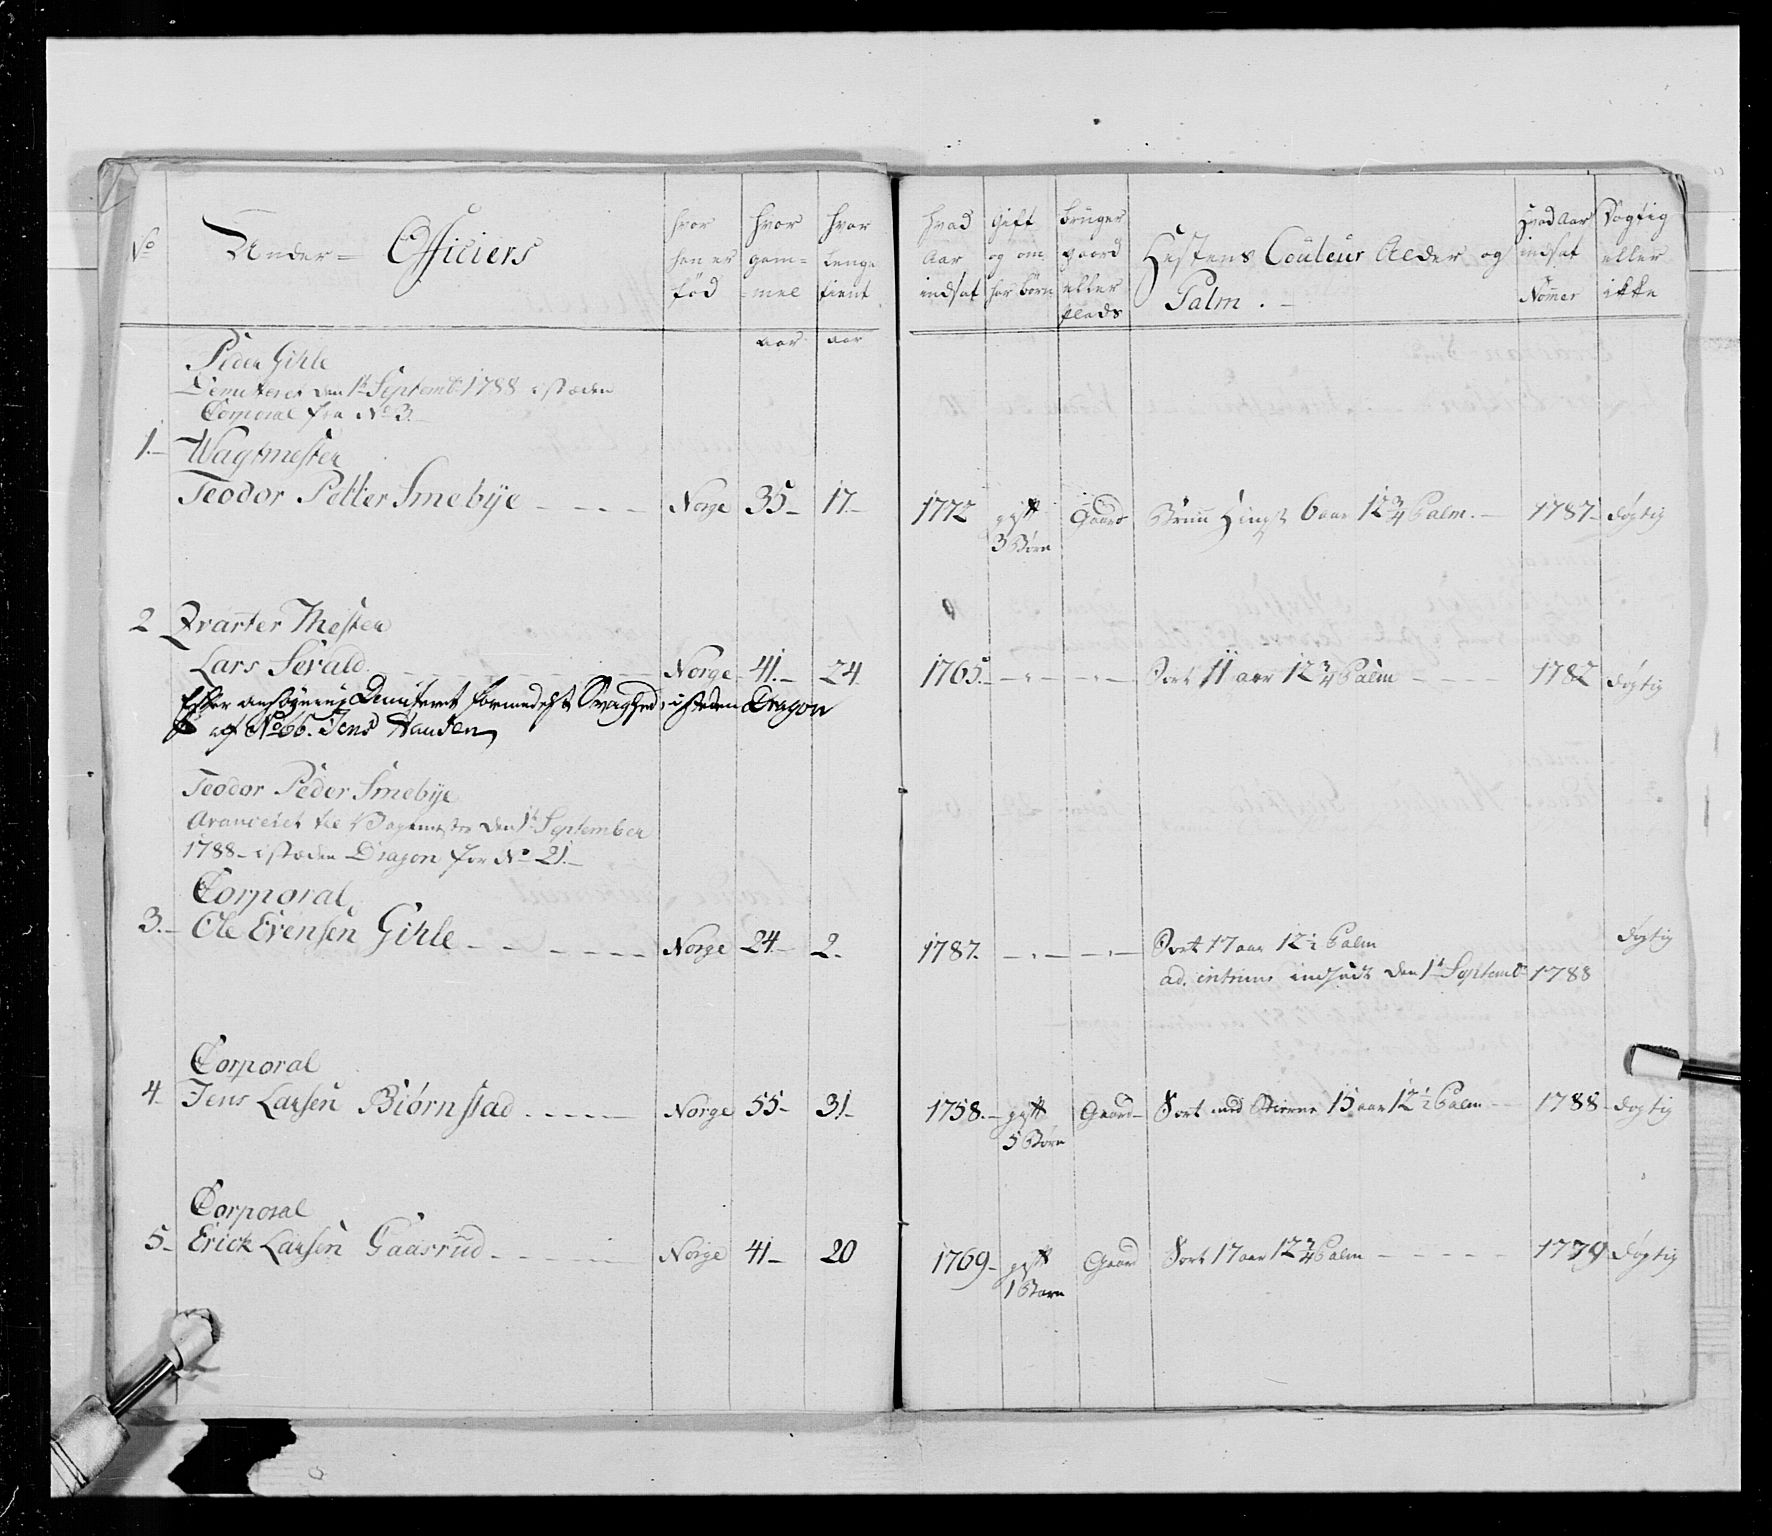 No
Under- Officiers
hvor han er fød
hvor gam= mel
hvor lenge tient
hvad Aar indsat
Gift og om har børn
bruger gaard eller plads
Hestens Couleur Alder og Palm.
Hvad Aar indsat Nomer
Døgtig eller ikke
aar aar
Peder Gihle
Demitteret den 1te Septembr 1788 istæden
Corporal fra No 3.
1. Wagtmester
Teodor Petter Smebye Norge 35 17. 1772 gift Gaard Brun Hingst 6 aar 12 3/4 Palm. 1787 døgtig
3 Børn
2 Qvarter Mester
Lars Serald Norge 41. 24 1765. Sort 11 aar 12 3/4 Palm 1782 døgtig
Efter ansøgning Demiteret formedelst Svaghed, isteden Dragon
af No 66. Jens Hansen
Teodor Peder Smebye
Avanceret til Wagtmester den 1te September
1788 istæden Dragon for No 21.
Corporal
3. Ole Evensen Gihle Norge 24 2. 1787. Sort 17 aar 12 1/2 Palm døgtig
ad. intrims indsadt den 1te Septemb 1788
Corporal
4. Jens Larsen Biørnstad Norge 55 31. 1758. gift Gaard Sort med Stierne 15 aar 12 1/2 Palm 1788 døgtig
5 Børn
Corporal
5. Erick Larsen Gaasrud Norge 41 20 1769 gift Gaard Sort 17 aar 12 3/4 Palm 1779 døgtig
1 Barn